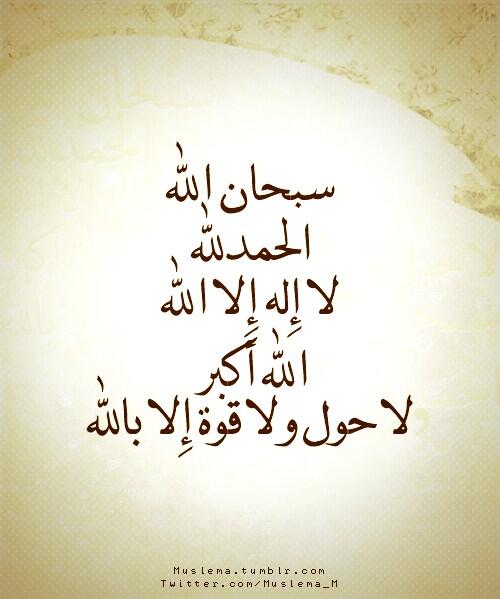 سبحان الله
الحمدلله
لا إله إلا الله
الله أكبر
لا حول ولا قوة إلا بالله
Muslema.tumblr.com
Twitter.com/Muslema_M